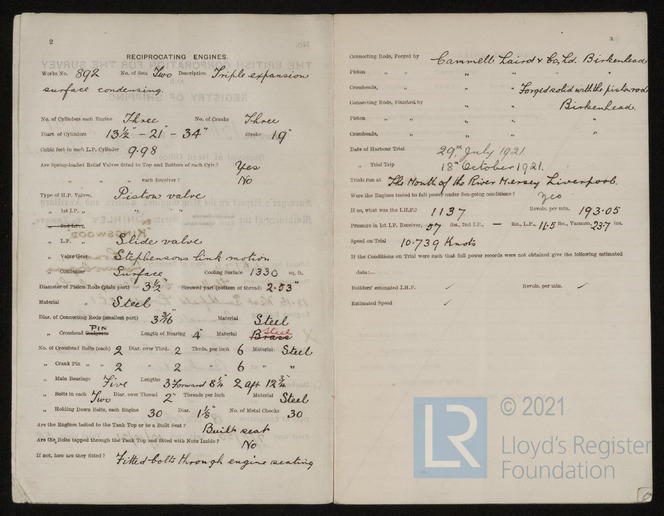 2
RECIPROCATING ENGINES.
Works No. 892 No. of Sets Two Description Triple expansion
surface condensing.
No. of Cylinders each Engine Three No. of Cranks Three
Diars. of Cylinders 13½" - 21 - 34" Stroke 19"
Cubic feet in each L.P. Cylinder 9.98
Are Spring-loaded Relief Valves fitted to Top and Bottom of each Cylr.? Yes
" " " each Receiver? No
Type of H.P. Valves, Piston valve
" 1st I.P. " " "
" 2nd I.P. "
" L.P. " Slide valve
" Valve Gear Stephensons link motion
" Condenser Surface Cooling Surface 1330 sq. ft.
Diameter of Piston Rods (plain part) 3½" Screwed part (bottom of thread) 2.53"
Material Steel
Diar. of Connecting Rods (smallest part) 3 3/16" Material Steel
" Crosshead Gudgeons PIN Length of Bearing 4" Material Brass Steel
No. of Crosshead Bolts (each) 2 Diar. over Thrd. 2 Thrds. per inch 6 Material Steel
" Crank Pin " " 2 " 2 " 6 " "
" Main Bearings Five Lengths 3 Forward 8¼" 2 aft 12¾"
" Bolts in each Two Diar. over Thread 2" Threads per inch Material Steel
" Holding Down Bolts, each Engine 30 Diar. 1⅛" No. of Metal Chocks 30
Are the Engines bolted to the Tank Top or to a Built Seat? Built seat
Are the Bolts tapped through the Tank Top and fitted with Nuts Inside? No
If not, how are they fitted? Fitted bolts through engine seating
3
Connecting Rods, Forged by Cammell Laird & Co, Ld. Birkenhead
Piston " " " " "
Crossheads, " " Forged solid with the piston rod
Connecting Rods, Finished by Birkenhead
Piston " " " "
Crossheads, " " " "
Date of Harbour Trial 29th July 1921
" Trial Trip 18th October 1921.
Trials run at The Mouth of the River Mersey Liverpool.
Were the Engines tested to full power under Sea-going conditions? Yes
If so, what was the I.H.P.? 1137 Revols. per min. 193.05
Pressure in 1st I.P. Receiver, 57 lbs., 2nd I.P., — lbs., L.P., 11.5 lbs., Vacuum, 23.7 ins.
Speed on Trial 10.739 Knots
If the Conditions on Trial were such that full power records were not obtained give the following estimated
data:—
Builders' estimated I.H.P. ✓ Revols. per min. ✓
Estimated Speed ✓
LR © 2021
Lloyd's Register
Foundation